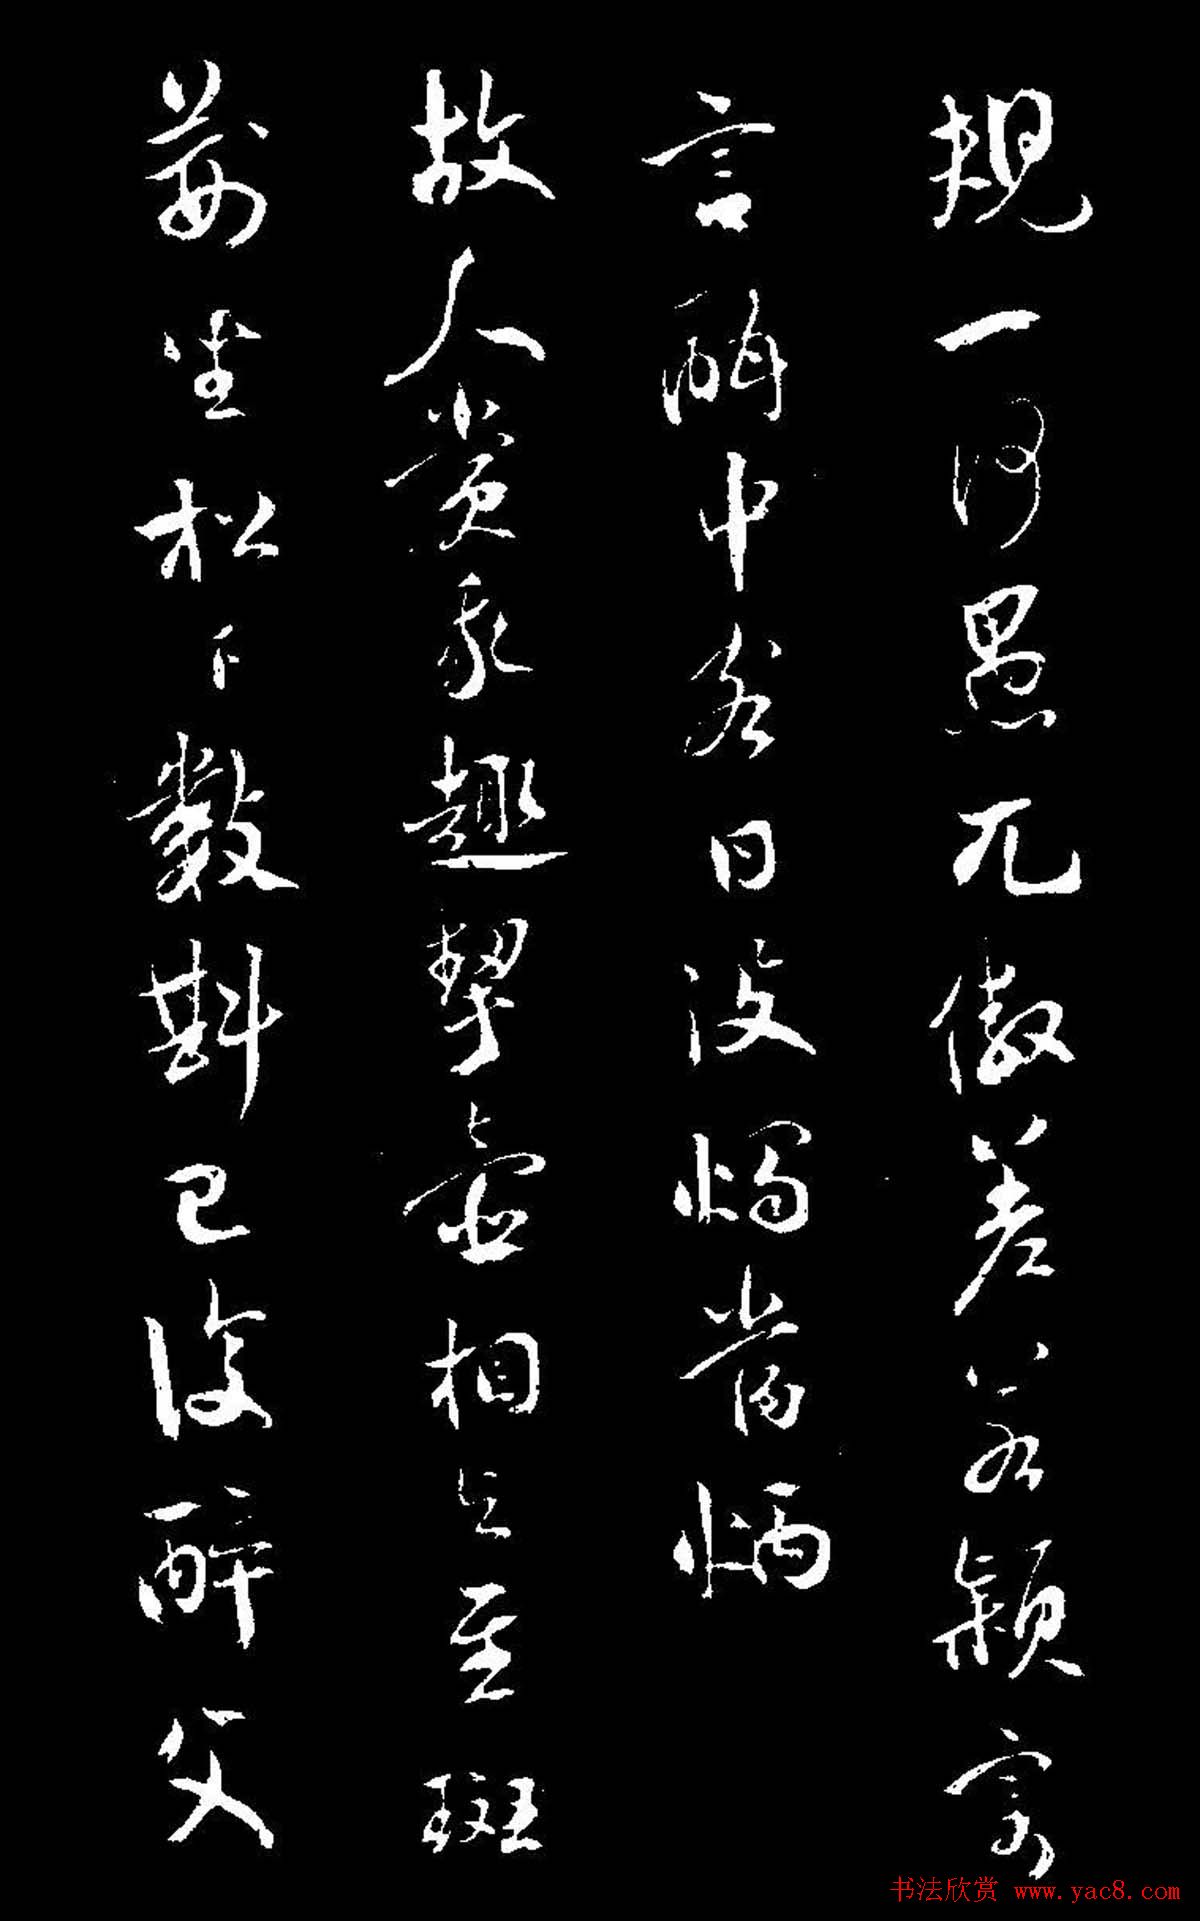 規一何愚兀傲差若穎寄
言酣中客日没燭當炳
故人賞我趣挈壺相與至班
荊坐松下數斟已復醉父
书法欣赏 www.yac8.com